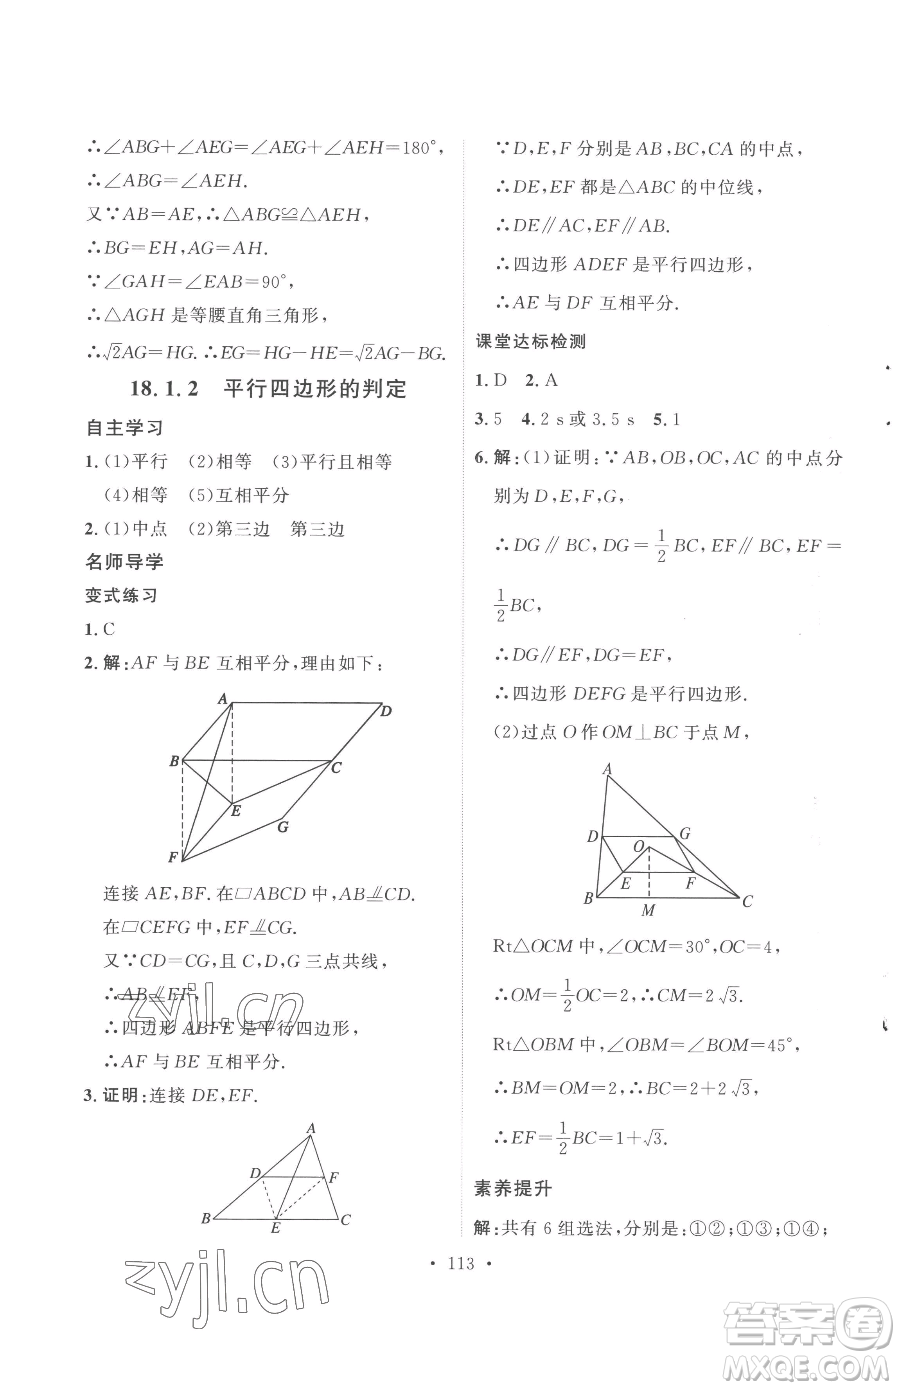 ∴∠ABG+∠AEG=∠AEG+∠AEH=180°,
∴∠ABG=∠AEH.
又∵AB=AE,∴△ABG≌△AEH,
∴BG=EH,AG=AH.
∵∠GAH=∠EAB=90°,
∴△AGH 是等腰直角三角形,
∴√2AG=HG. ∴EG=HG-HE=√2AG-BG.
18.1.2 平行四边形的判定
自主学习
1.(1)平行 (2)相等 (3)平行且相等
(4)相等 (5)互相平分
2.(1)中点 (2)第三边 第三边
名师导学
变式练习
1.C
2.解:AF 与 BE 互相平分,理由如下:
A
D
B
C
E
G
F
连接 AE,BF.在▱ABCD 中,AB⫽CD.
在▱CEFG 中,EF⫽CG.
又∵CD=CG,且 C,D,G 三点共线,
∴AB⫽EF,
∴四边形 ABFE 是平行四边形,
∴AF 与 BE 互相平分.
3.证明:连接 DE,EF.
A
D
F
B
E
C
∵D,E,F 分别是 AB,BC,CA 的中点,
∴DE,EF 都是△ABC 的中位线,
∴DE∥AC,EF∥AB.
∴四边形 ADEF 是平行四边形,
∴AE 与 DF 互相平分.
课堂达标检测
1.D 2.A
3.5 4.2 s或 3.5 s 5.1
6.解:(1)证明:∵AB,OB,OC,AC 的中点分
别为 D,E,F,G,
∴DG∥BC,DG=1/2BC,EF∥BC,EF=
1/2BC,
∴DG∥EF,DG=EF,
∴四边形 DEFG 是平行四边形.
(2)过点 O 作 OM⊥BC 于点 M,
A
D
G
O
E
F
B
M
C
Rt△OCM 中,∠OCM=30°,OC=4,
∴OM=1/2OC=2,∴CM=2√3.
Rt△OBM 中,∠OBM=∠BOM=45°,
∴BM=OM=2,∴BC=2+2√3,
∴EF=1/2BC=1+√3.
素养提升
解:共有 6 组选法,分别是:①②;①③;①④;
• 113 •
zyjl.cn
zyjl.cn
答案圈
MXQE.COM